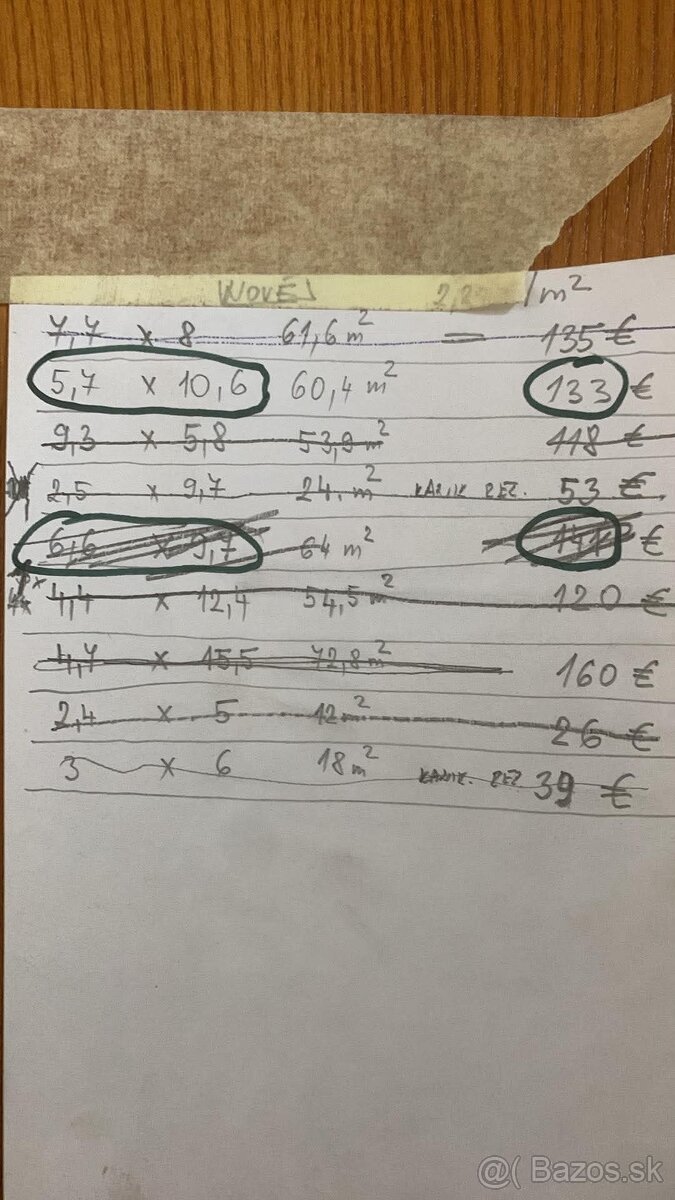 NOVÉJ 2,2 /m²
7,7 x 8 61,6 m² = 135 €
5,7 x 10,6 60,4 m² 133 €
9,3 x 5,8 53,9 m² 118 €
2,5 x 9,7 24. m² REZ. 53 €
6,6 x 9,7 64 m² 141 €
4,4 x 12,4 54,5 m² 120 €
4,7 x 15,5 72,8 m² 160 €
2,4 x 5 12 m² 26 €
3 x 6 18 m² REZ 39 €
@( Bazos.sk